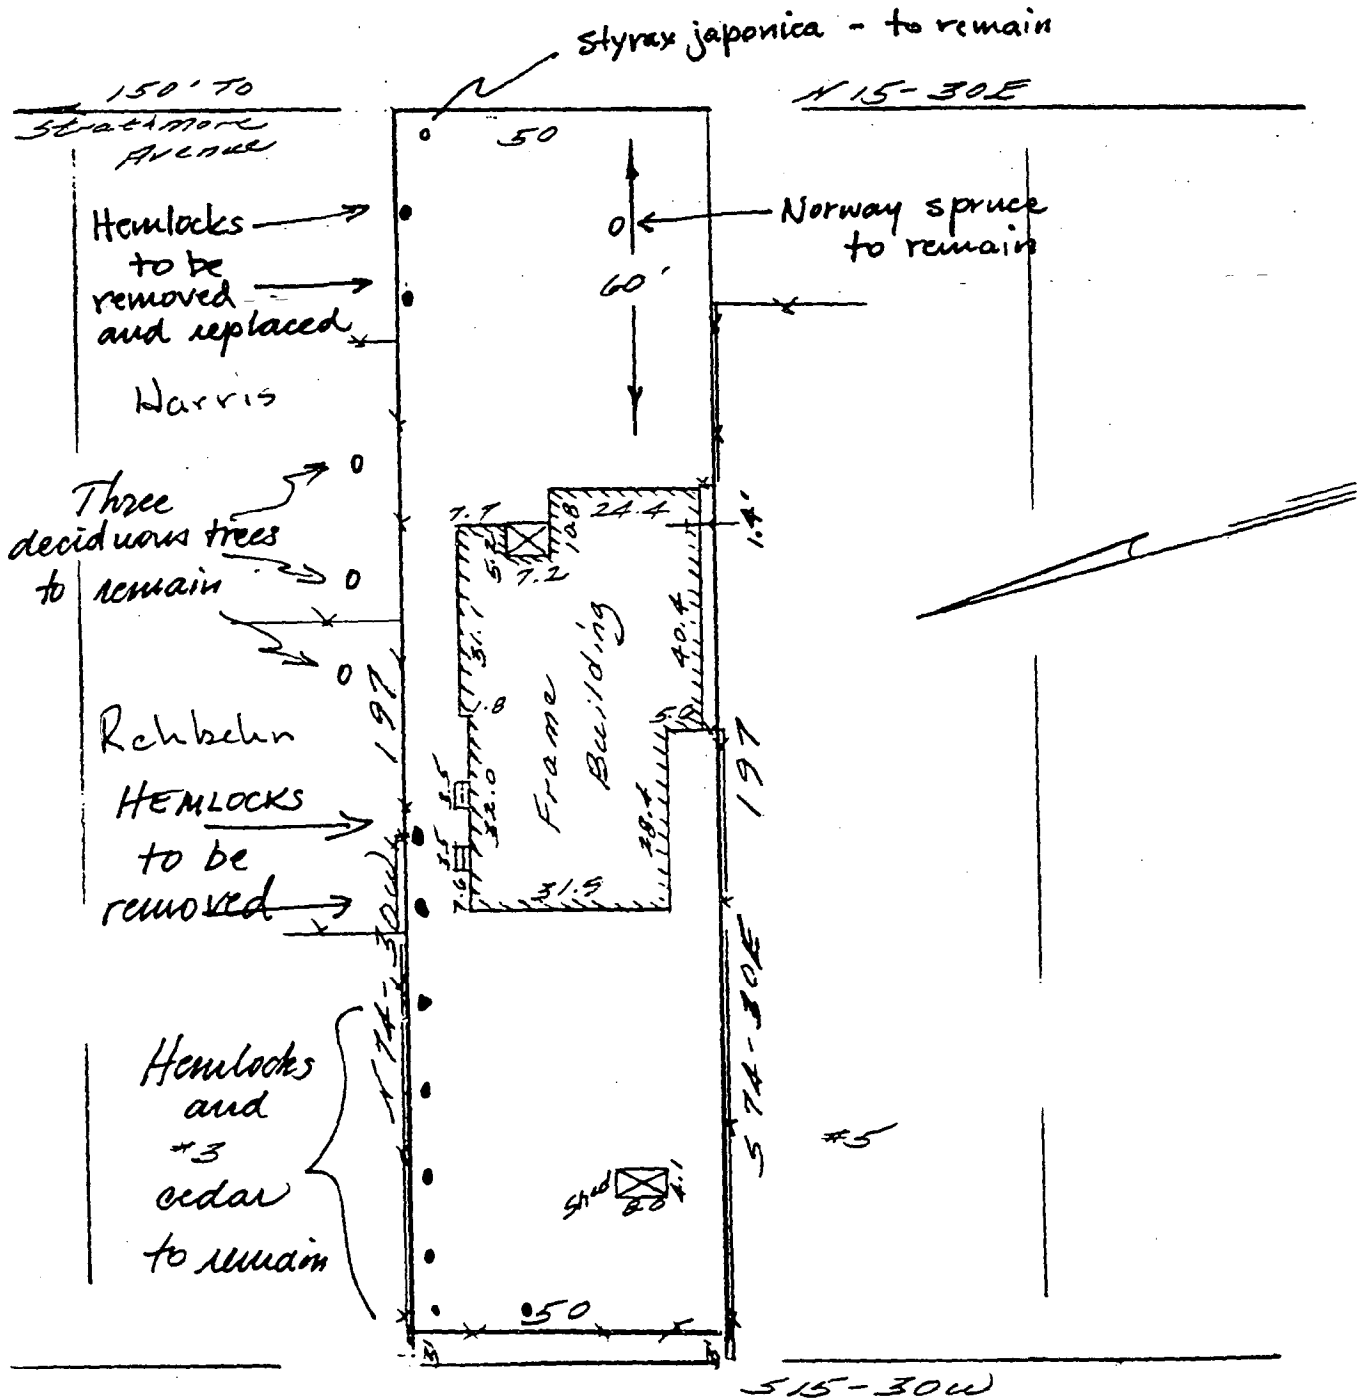 styrax japonica - to remain
150' TO
Strathmore
Avenue
N 15-30E
50
Hemlocks
to be
removed
and replaced
Norway spruce
to remain
60'
Harris
Three
deciduous trees
to remain
7.7
5.2
7.2
10.8
24.4
1.4'
31.7
.8
40.4
5.0
Frame
Building
197
Rehbehn
HEMLOCKS
to be
removed
3.5
3.5
32.0
7.6
31.5
28.4
197
N 74-30W
S 74-30E
Hemlocks
and
#3
cedar
to remain
#5
Shed
8.0
4.1
50
3'
3'
S15-30W